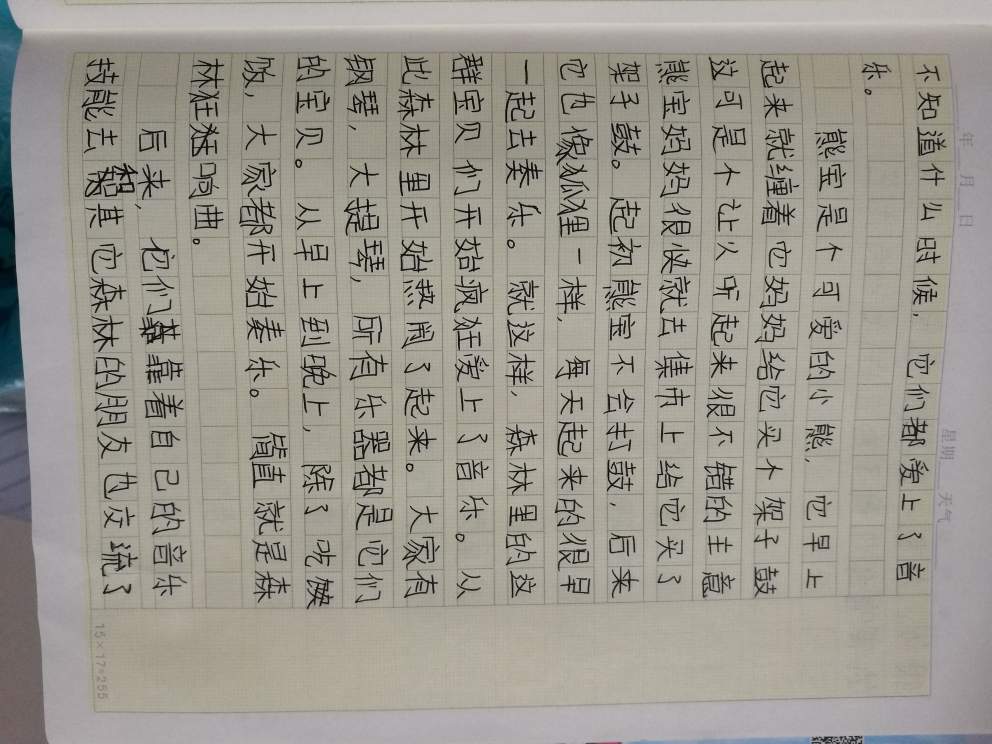 年 月 日 星期 天气
不知道什么时候，它们都爱上了音
乐。
熊宝是个可爱的小熊，它早上
起来就缠着它妈妈给它买个架子鼓
这可是个让人听起来很不错的主意
熊宝妈妈很快就去集市上给它买了
架子鼓。起初熊宝不会打鼓，后来
它也像狐狸一样，每天起来的很早
一起去奏乐。就这样，森林里的这
群宝贝们开始疯狂爱上了音乐。从
此森林里开始热闹了起来。大家有
钢琴，大提琴，所有乐器都是它们
的宝贝。从早上到晚上，除了吃
饭，大家都开始奏乐。简直就是森
林狂响曲。
后来，它们靠着自己的音乐
技能去和其它森林的朋友也交流了
15×17=255